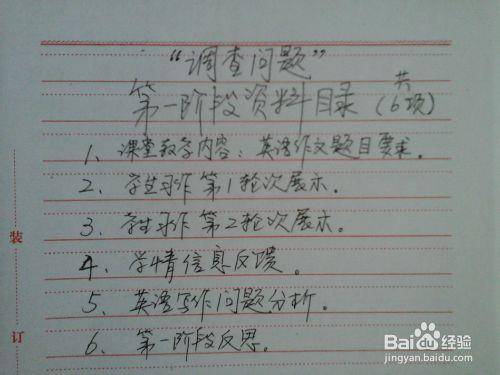 “调查问题”
第一阶段资料目录（共6项）
1、课堂教学内容：英语作文题目要求。
2、学生习作第1轮次展示。
3、学生习作第2轮次展示。
4、学情信息反馈。
5、英语写作问题分析。
6、第一阶段反思。
装
订
Baidu经验
jingyan.baidu.com